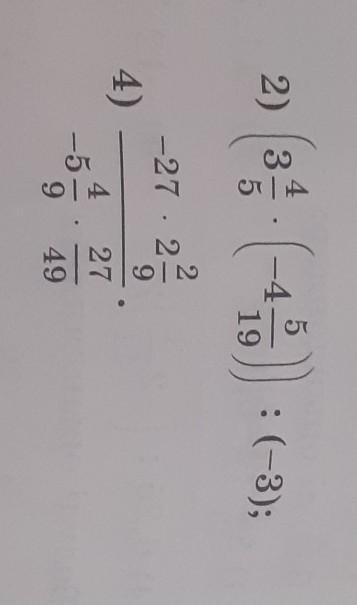 2) (3 4/5 · (−4 5/19)) : (−3);
4) (−27 · 2 2/9)/(−5 4/9 · 27/49).